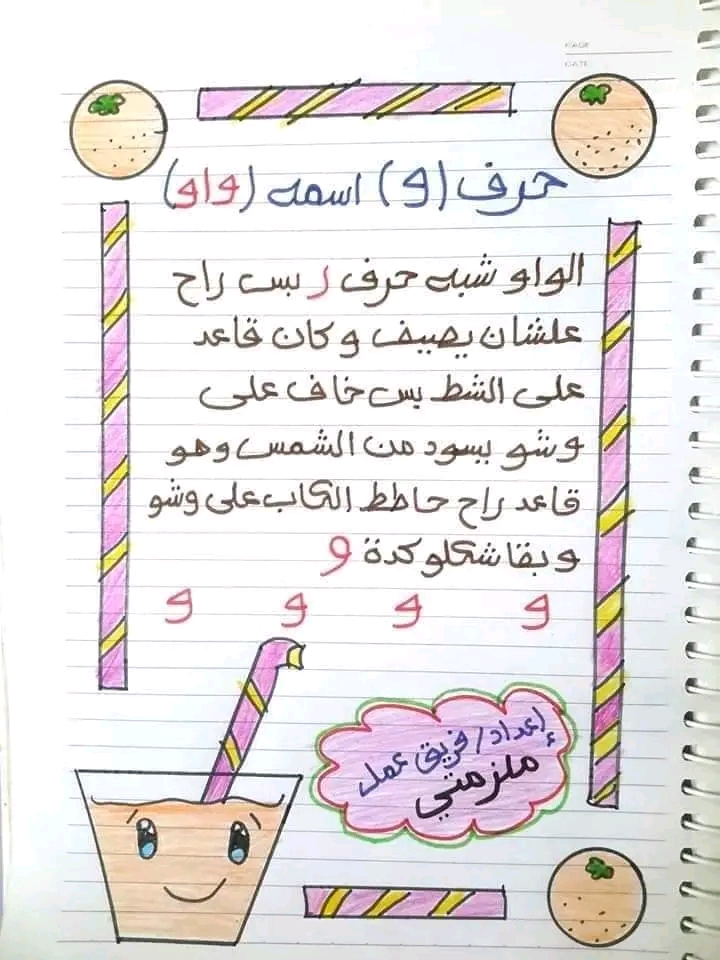 PAGE
DATE
حرف (و) اسمه (واو)
الواو شبه حرف ر بس راح
علشان يصيف وكان قاعد
على الشط بس خاف على
وشو يسود من الشمس وهو
قاعد راح حاطط الكاب على وشو
وبقا شكلو كدة و
و و و و
إعداد/ فريق عمل
ملزمتي